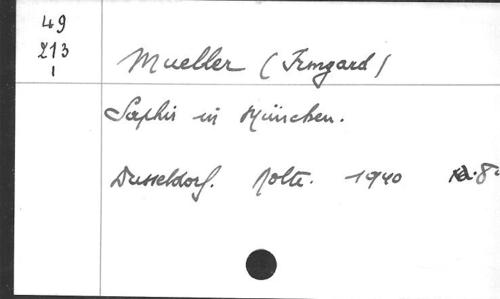 49
213
1
Mueller (Irmgard)
Saphir in München.
Dusseldorf. Nolte. 1940 8°